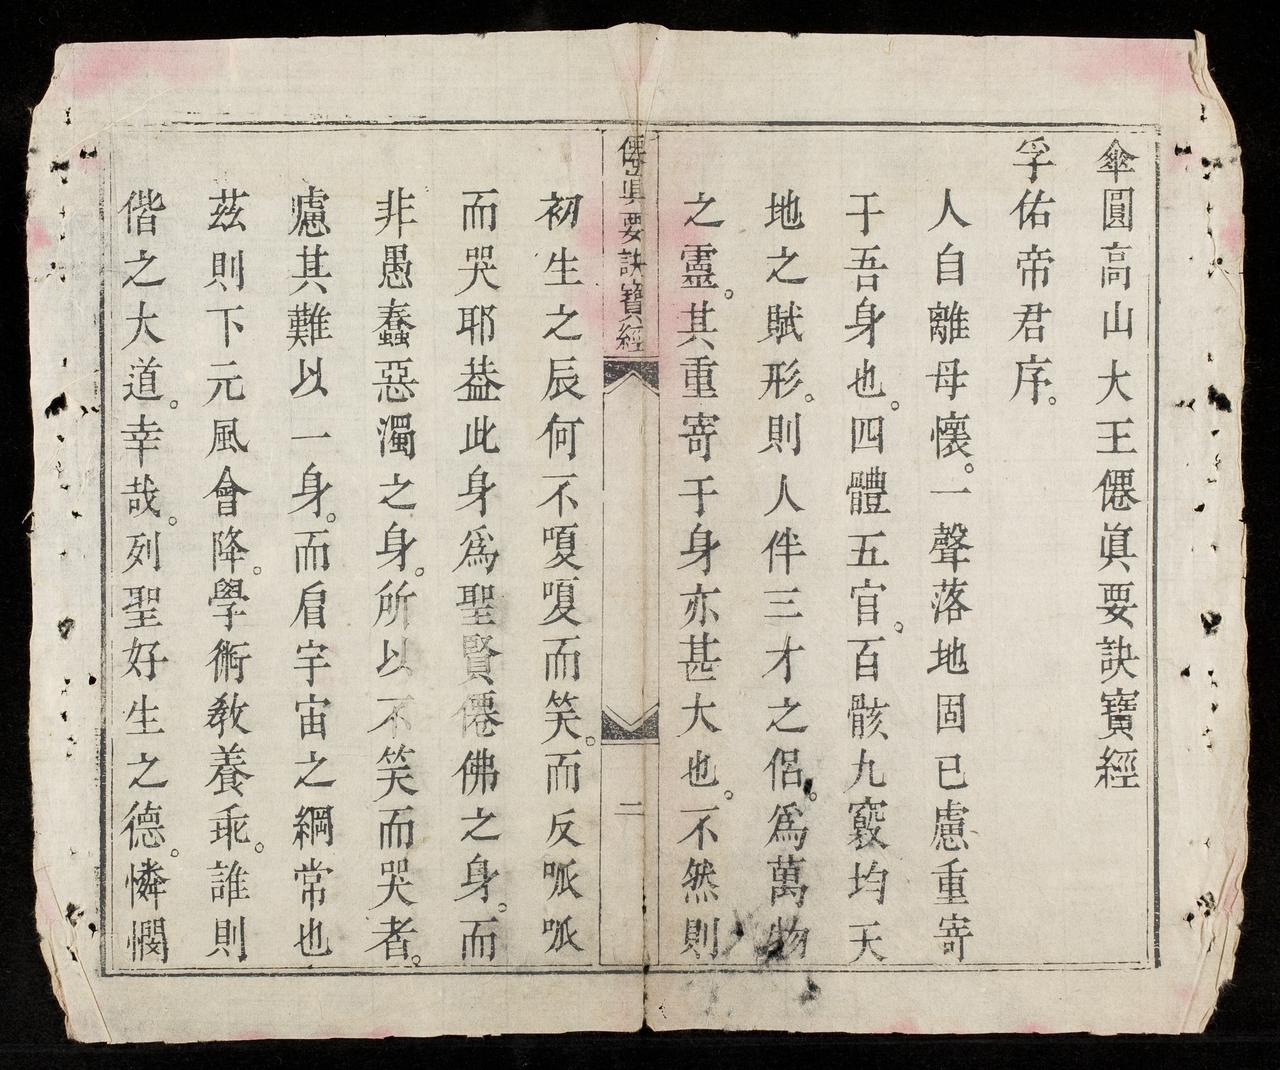 傘圓高山大王僊眞要訣寶經
孚佑帝君序。
人自離母懷。一聲落地固已慮重寄
于吾身也。四體五官。百骸九竅均天
地之賦形。則人伴三才之侶。爲萬物
之靈。其重寄于身亦甚大也。不然則
僊眞要訣寶經
二
初生之辰何不嗄嗄而笑。而反呱呱
而哭耶葢此身爲聖賢僊佛之身。而
非愚蠢惡濁之身。所以不笑而哭者。
慮其難以一身。而肩宇宙之綱常也
茲則下元風會降。學術教養乖。誰則
偕之大道。幸哉。列聖好生之德。憐憫